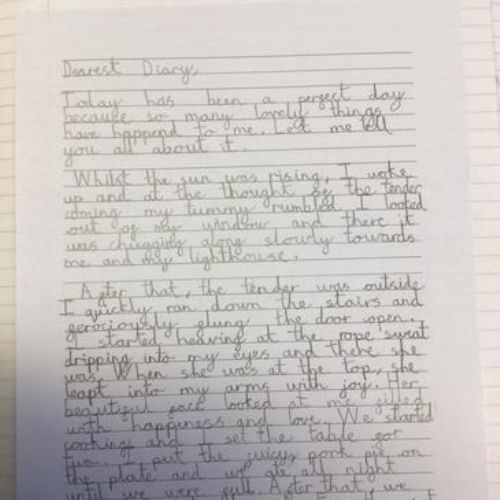 Dearest Diary,
Today has been a perfect day
because so many lovely things
have happend to me. Let me tell
you all about it.
Whilst the sun was rising, I woke
up and at the thought of the tender
coming my tummy rumbled I looked
out of my window and there it
was chugging along slowly towards
me and my lighthouse.
After that, the tender was outside
I quickly ran down the stairs and
ferociously flung the door open.
I started heaving at the rope sweat
dripping into my eyes and there she
was. When she was at the top, she
leapt into my arms with joy. Her
beautiful face looked at me filled
with happiness and love. We started
cooking and I set the table for
two. I put the juicy pork pie on
the plate and we ate all night
until we were full. After that, we